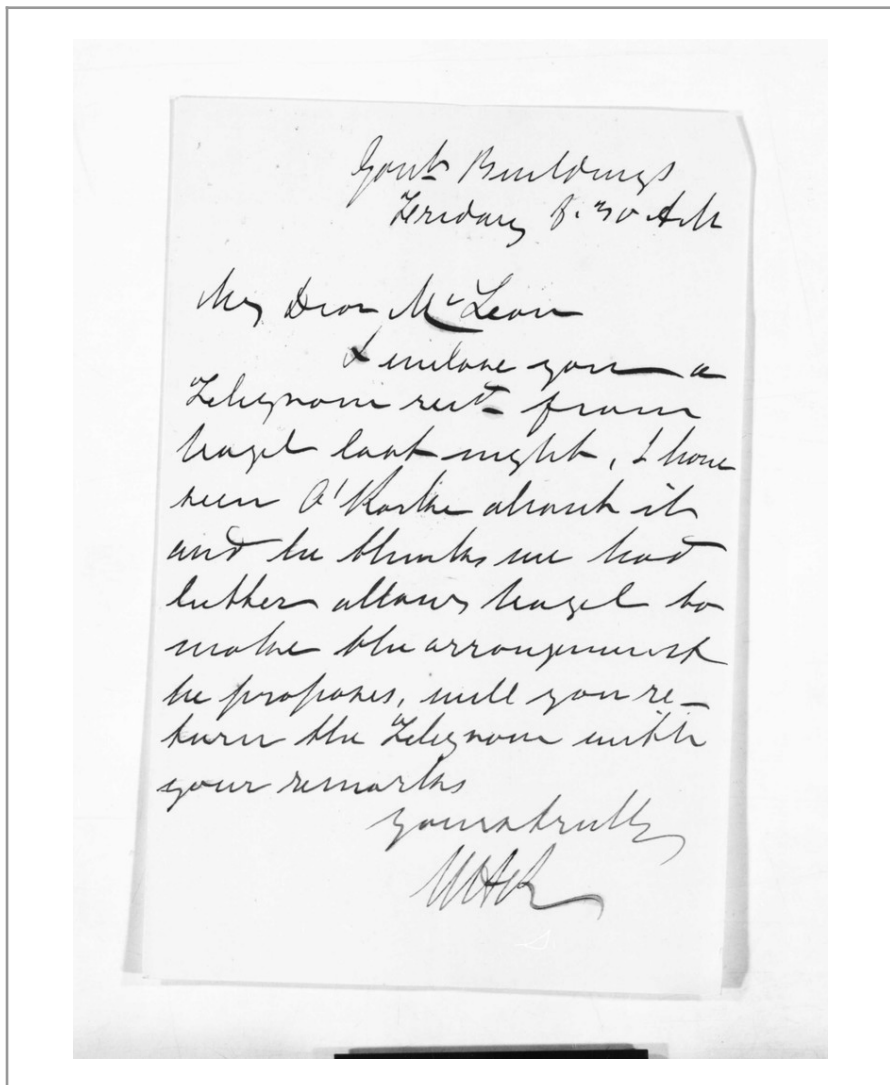 Govt Buildings
Friday 8.30 AM
My Dear McLean
I inclose you a
Telegram rect from
Vogel last night, I have
seen O'Rorke about it
and he thinks we had
better allow Vogel to
make the arrangement
he proposes, will you re-
turn the Telegram with
your remarks
Yours truly
WHR